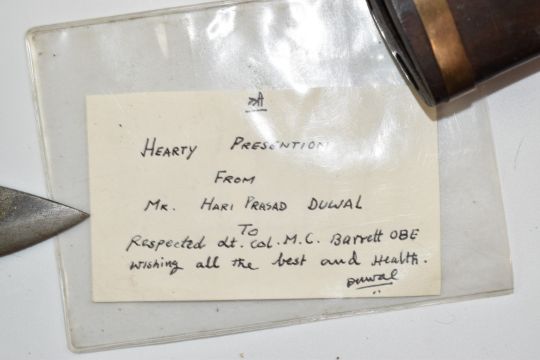 HEARTY PRESENTION
FROM
MR. HARI PRASAD DUWAL
TO
Respected Lt. Col. M.C. Barrett OBE
wishing all the best and Health.
Duwal